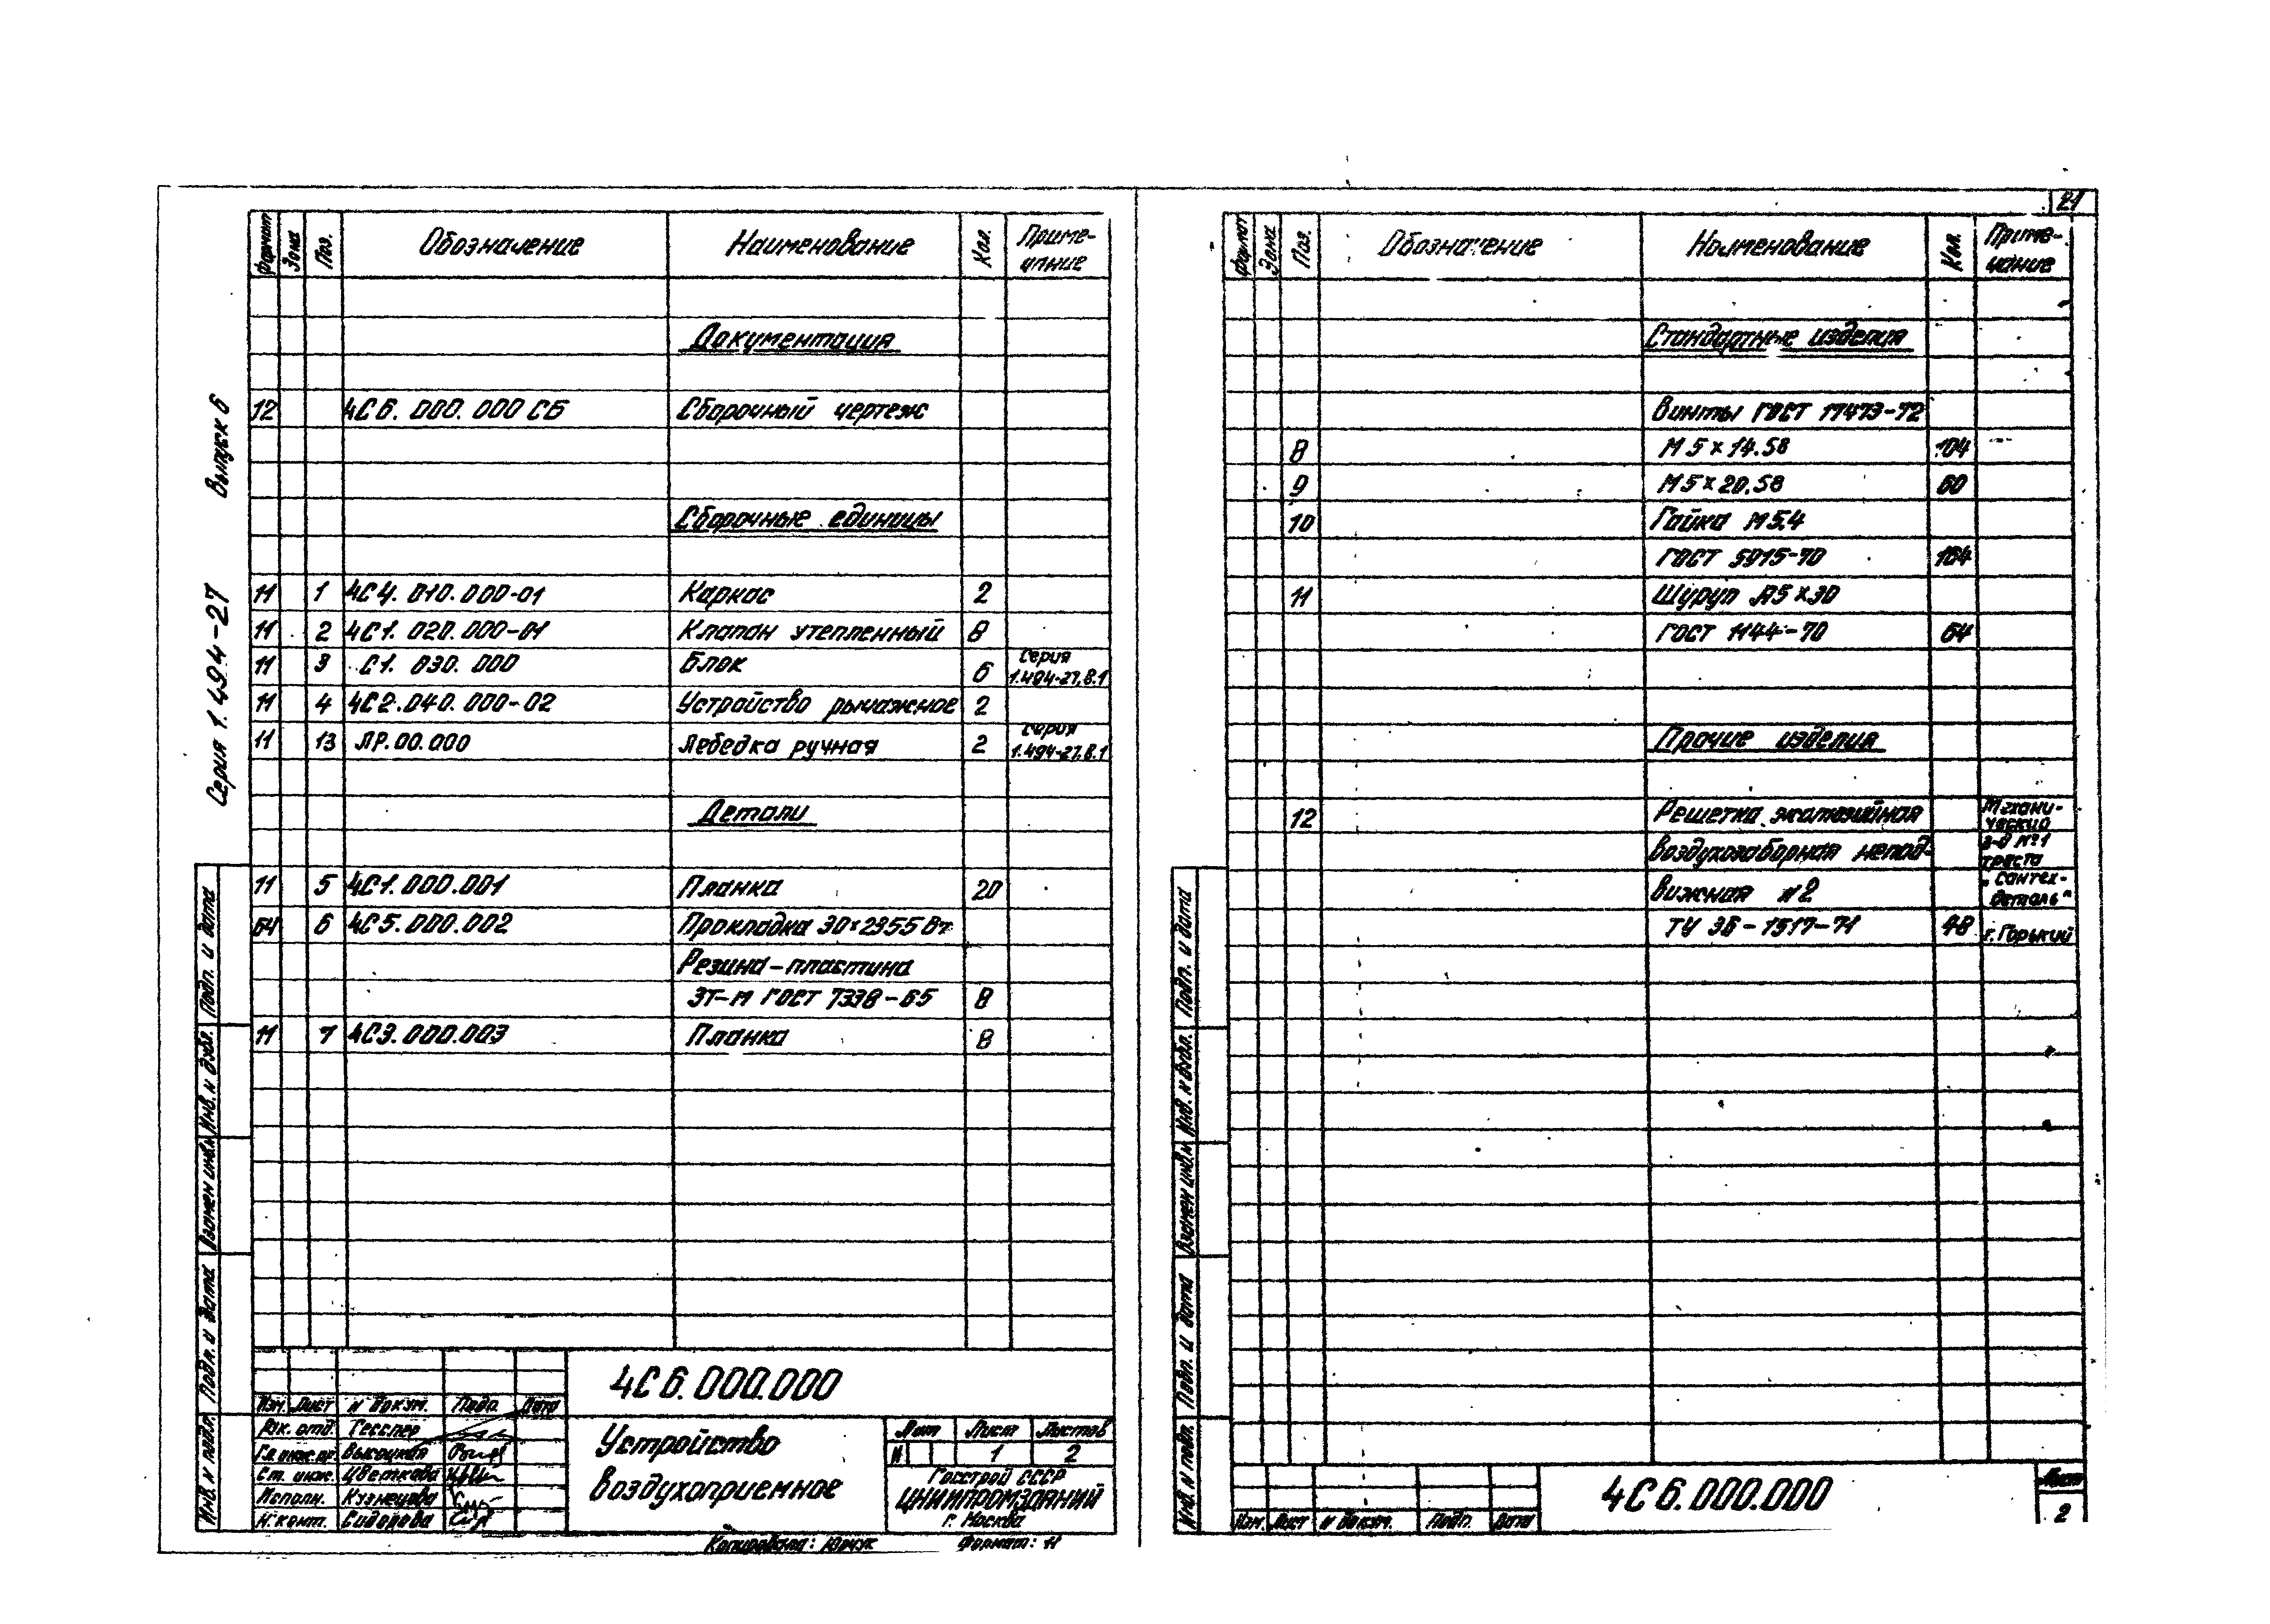 21
Серия 1.494-27 Выпуск 6
Формат Зона Поз. Обозначение Наименование Кол. Приме-
чание
Документация
12 4С6.000.000 СБ Сборочный чертеж
Сборочные единицы
11 1 4С4.010.000-01 Каркас 2
11 2 4С1.020.000-01 Клапан утепленный 8
11 3 С1.030.000 Блок 6 Серия
1.494-27, В.1
11 4 4С2.040.000-02 Устройство рычажное 2
11 13 ЛР.00.000 Лебедка ручная 2 Серия
1.494-27, В.1
Детали
11 5 4С1.000.001 Планка 20
БЧ 6 4С5.000.002 Прокладка 30×2955 Вт
Резина-пластина
3Т-М ГОСТ 7338-65 8
11 7 4С3.000.003 Планка 8
Инв. N подл. Подп. и дата Взамен инв. N Инв. N дубл. Подп. и дата
4С6.000.000
Изм. Лист N докум. Подп. Дата
Рук. отд. Гесслер
Гл. инж. пр. Высоцкая
Ст. инж. Цветкова
Исполн. Кузнецова
Н. конт. Сидорова
Устройство
воздухоприемное
Лит Лист Листов
И 1 2
Госстрой СССР
ЦНИИПРОМЗДАНИЙ
г. Москва
Копировала: Юрчук Формат: 11
Формат Зона Поз. Обозначение Наименование Кол. Приме-
чание
Стандартные изделия
Винты ГОСТ 17473-72
8 М5×14.58 104
9 М5×20.58 60
10 Гайка М5.4
ГОСТ 5915-70 164
11 Шуруп А5×30
ГОСТ 1144-70 64
Прочие изделия
12 Решетка жалюзийная Механи-
ческий
воздухозаборная непод- з-д №1
треста
вижная N2 "Сантех-
деталь"
ТУ 36-1517-71 48 г. Горький
Инв. N подл. Подп. и дата Взамен инв. N Инв. N дубл. Подп. и дата
Изм. Лист N докум. Подп. Дата
4С6.000.000
Лист
2